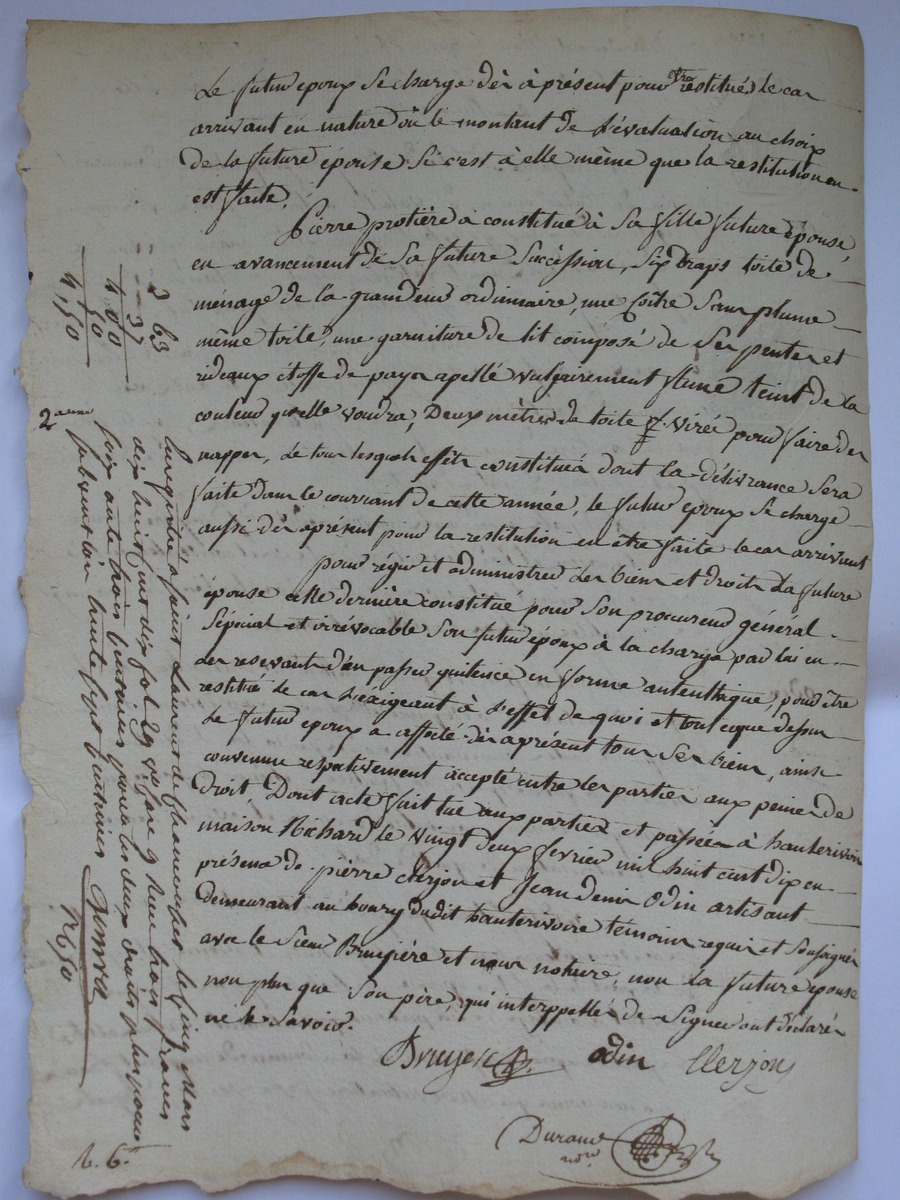 Le futur epoux se charge dès à présent pour etre restitués le cas
arrivant en nature ou le montant de l'évaluation au choix
de la future épouse si c'est à elle même que la restitution en
est faite.
Pierre protière a constitué à sa fille future épouse
en avancement de sa future succession, six draps toile de
ménage de la grandeur ordinnaire, une coitre sans plume
même toile, une garniture de lit composé de ser penter et
rideaux étoffe de pays apellé vulgairement flune teint de la
couleur qu'elle voudra, Deux mètres de toile virée pour faire des
nappes, de tous lesquels effets constitués dont la délivrance sera
faite dans le courrant de cette année, le futur epoux se charge
aussi dès aprésent pour la restitution en être faite le cas arrivant
pour régir et administrer les biens et droits la future
épouse cette dernière constitue pour son procureur général
Spécial et irrévocable son futur époux à la charge par lui en
les resevant d'en passer quittence en forme autenthique, pour être
restitué le cas l'exigeant à l'effet de quoi et tout ceque dessus
Le futur epoux a affecté dès aprésent tous ses biens, ainsi
convenu respectivement accepté entre les parties aux peines de
Droit, Dont acte fait lue aux parties et passée à hauterivoire
maison Richard le vingt deux fevrier mil huit cent dix en
présence de pierre clerjon et Jean denis Odin artisant
demeurant au bourg dudit hauterivoire témoins requis et soussignés
avec le sieur Bruyière et nous notaire, non la future épouse
non plus que son père, qui interppellés de signer ont déclarés
ne le savoir.
Bruyere odin Clerjon
Durand
nore
3 63
37
4,00
50
4,50
2 anne
Enregistré à saint Laurent de Chamousset le cinq Mars
dix huit cent dix fol 29 vo case 9 Reçu trois francs
soix ante trois centimes pour les deux droits plus pour
subvention trente sept centimes